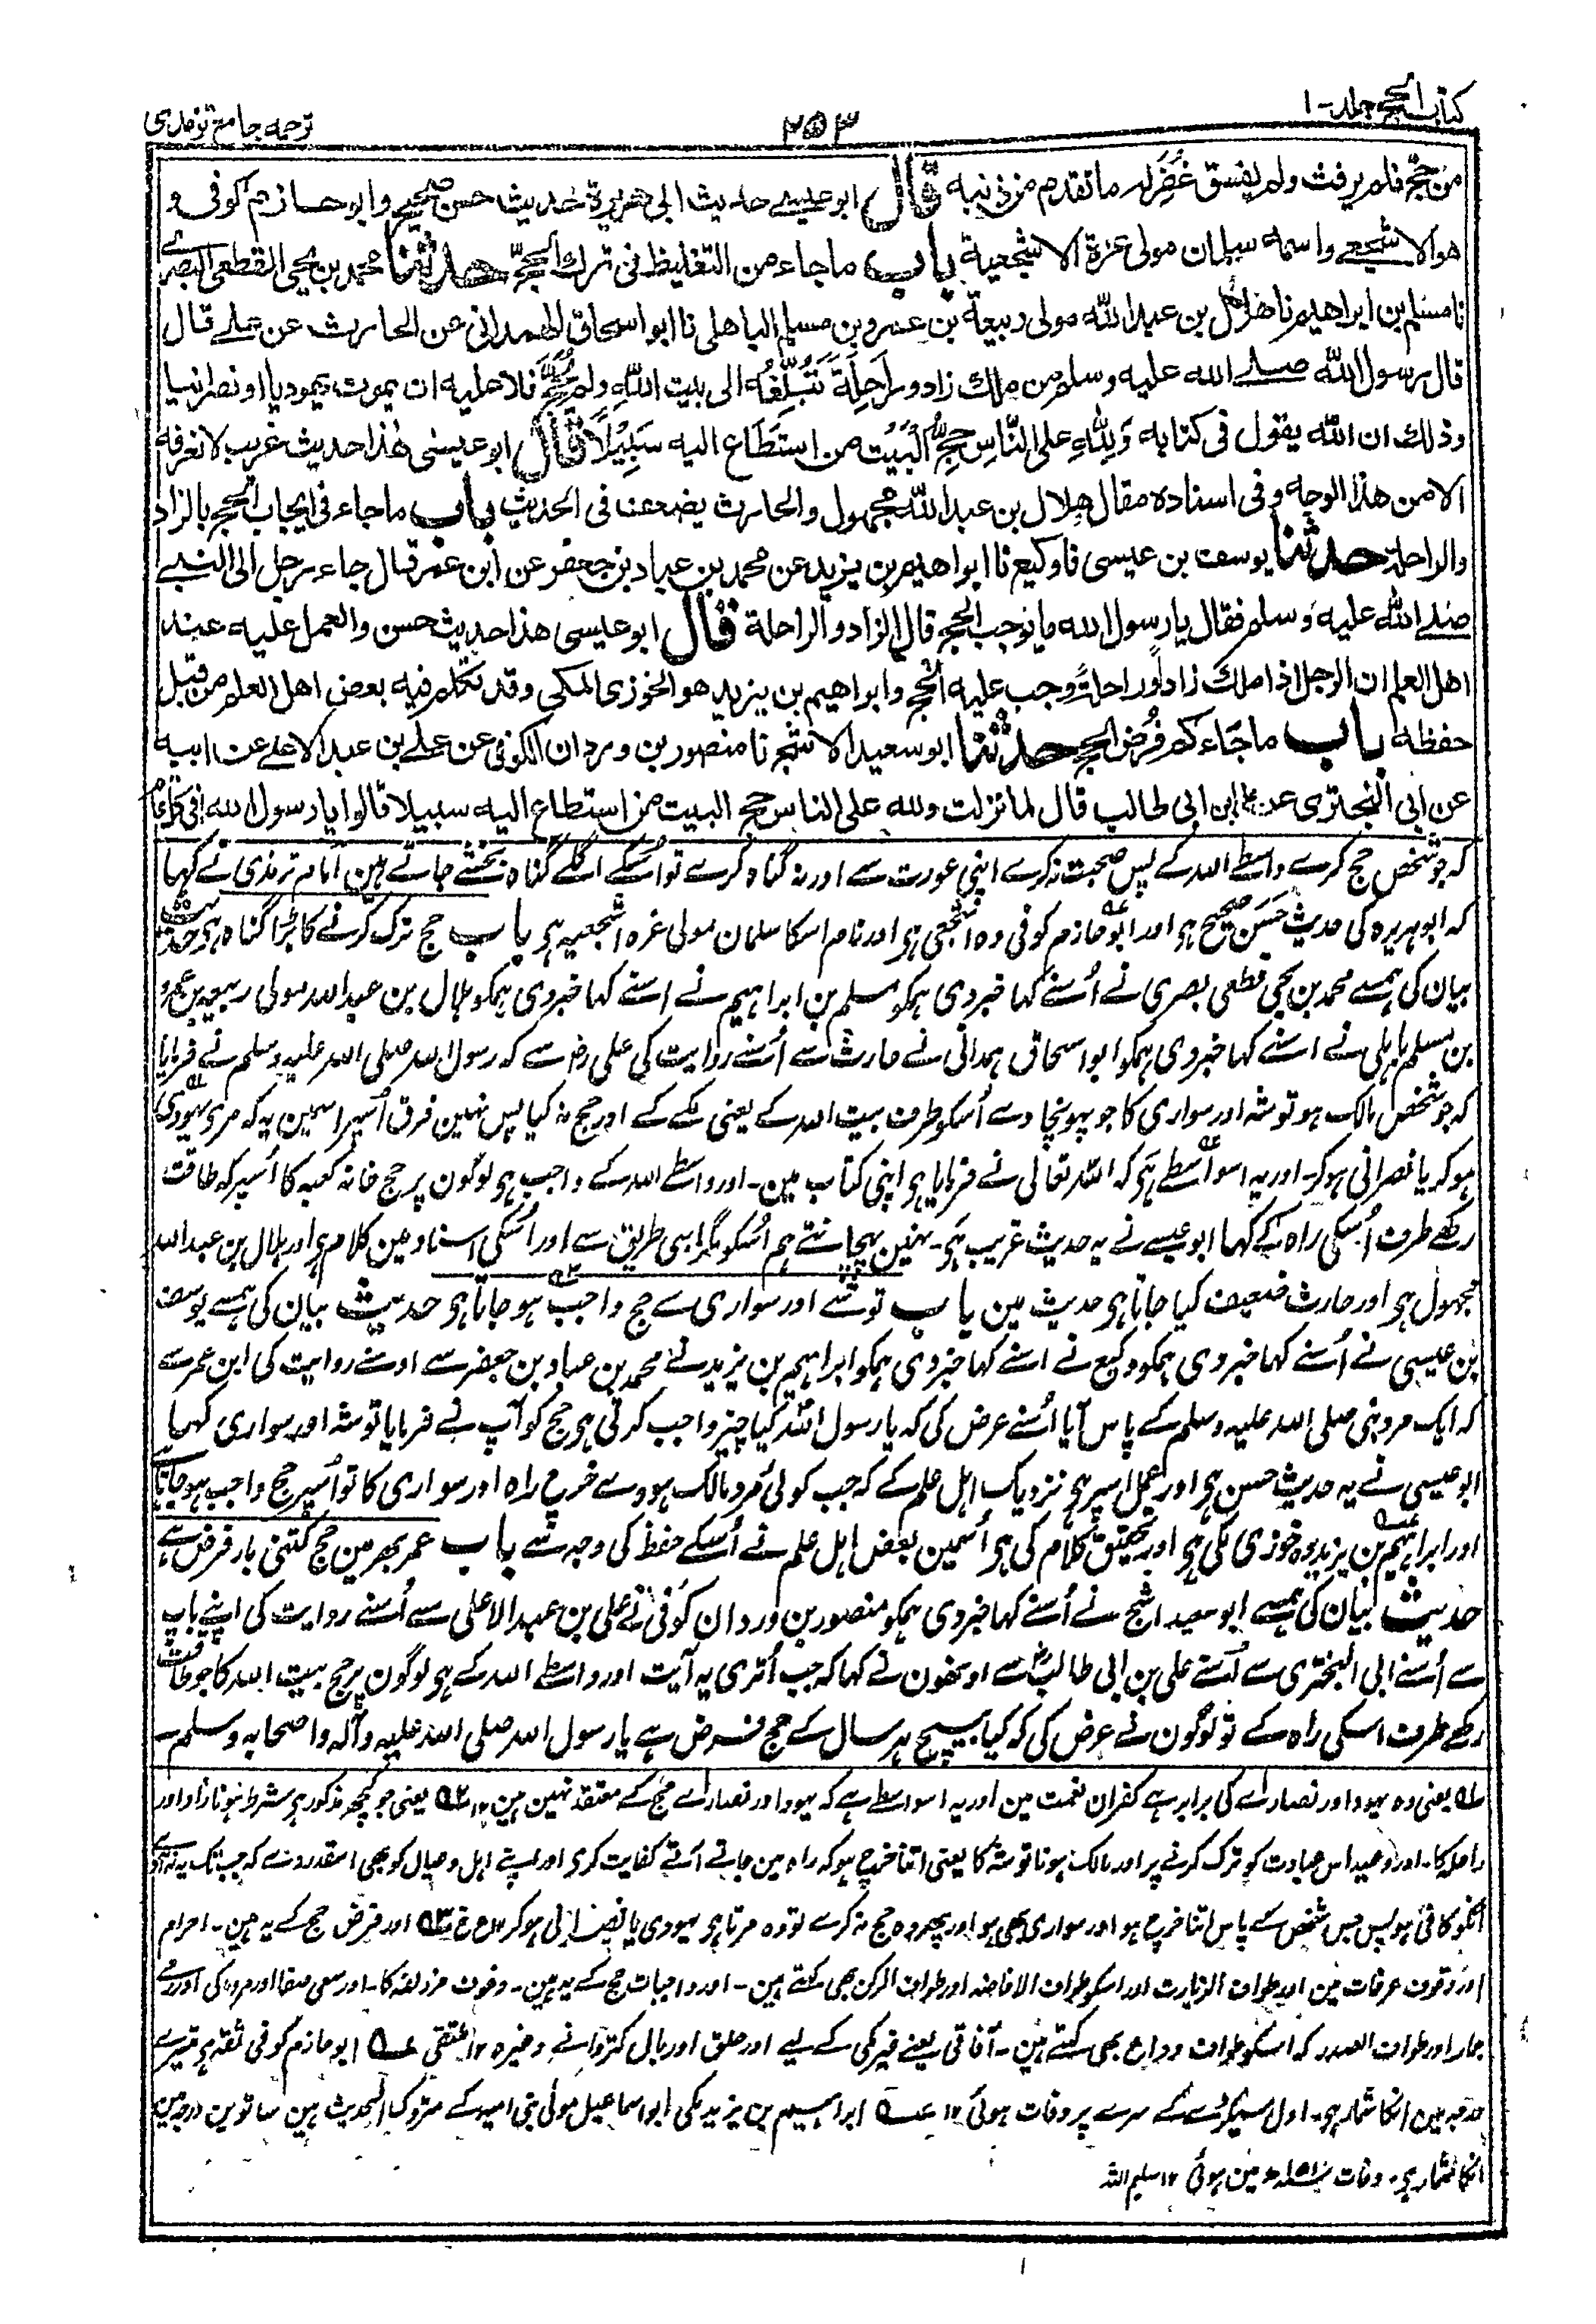 کتاب الحج جلد-۱
۲۵۳
ترجمہ جامع ترمذی
من حجّ فلم يرفث ولم يفسق غُفِرَ له ما تقدم من ذنبه قال ابو عيسے حديث ابی هريرة حديث حسن صحيح وابو حازم كوفی و
هو الاشجعے واسمه سلمان مولی عزة الاشجعية باب ما جاء من التغليظ فی ترك الحجّ حدثنا محمد بن يحيی القطعی البصرے
نا مسلم بن ابراهيم نا هلال بن عبد الله مولی ربيعة بن عمرو بن مسلم الباهلی نا ابو اسحاق الهمدانی عن الحارث عن علے قال
قال رسول الله صلے الله عليه وسلم من ملك زاد وراحلة تبلّغه الی بيت الله ولم يحجّ فلا عليه ان يموت يهوديا او نصرانيا
وذلك ان الله يقول فی كتابه وَلِلّٰهِ علی النَّاسِ حِجُّ الْبَيْتِ من استَطَاع اليه سَبِيْلًا قال ابو عيسٰی هٰذا حديث غريب لا نعرفه
الا من هذا الوجه وفی اسناده مقال هِلال بن عبد الله مجهول والحارث يضعف فی الحديث باب ما جاء فی ايجاب الحج بالزاد
والراحلة حدثنا يوسف بن عيسی نا وكيع نا ابراهيم بن يزيد عن محمد بن عباد بن جعفر عن ابن عمر قال جاء رجل الی النبے
صلے الله عليه وسلم فقال يا رسول الله ما يوجب الحج قال الزاد والراحلة قال ابو عيسی هذا حديث حسن والعمل عليه عند
اهل العلم ان الرجل اذا ملك زادا وراحلة وجب عليه الحج وابراهيم بن يزيد هو الخوزی المكی وقد تكلم فيه بعض اهل العلم من قبل
حفظه باب ما جاء كم فُرض الحج حدثنا ابو سعيد الاشج نا منصور بن وردان الكوفی عن علے بن عبد الاعلے عن ابيه
عن ابی البختری عن علی ابن ابی طالب قال لما نزلت ولله علی الناس حج البيت من استطاع اليه سبيلا قالوا يا رسول الله افی كل عام
کہ جو شخص حج کرے واسطے اللہ کے پس صحبت نہ کرے اپنی عورت سے اور نہ گناہ کرے تو اسکے اگلے گناہ بخشے جاتے ہین امام ترمذی نے کہا
کہ ابو ہریرہ کی حدیث حسن صحیح ہو اور ابو حازم کوفی وہ اشجعی ہو اور نام اسکا سلمان مولی غرہ اشجعیہ ہو باب حج ترک کرنے کا بڑا گناہ ہو حدیث
بیان کی ہمسے محمد بن یحیی قطعی بصری نے اُسنے کہا خبر دی ہمکو مسلم بن ابراہیم نے اسنے کہا خبر دی ہمکو ہلال بن عبد اللہ مولی ربیعہ بن عمرو
بن مسلم باہلی نے اسنے کہا خبر دی ہمکو ابو اسحاق ہمدانی نے حارث سے اُسنے روایت کی علی رض سے کہ رسول اللہ صلی اللہ علیہ وسلم نے فرمایا
کہ جو شخص مالک ہو توشہ اور سواری کا جو پہونچا دے اُسکو طرف بیت اللہ کے یعنی مکے کے اور حج نہ کیا پس نہین فرق اُسپر اسمین یہ کہ مرے یہودی
ہو کر یا نصرانی ہو کر۔ اور یہ اسواسطے ہو کہ اللہ تعالی نے فرمایا ہو اپنی کتاب مین۔ اور واسطے اللہ کے واجب ہو لوگون پر حج خانہ کعبہ کا اُسپر کہ طاقت
رکھے طرف اُسکی راہ کے کہا ابو عیسے نے یہ حدیث غریب ہو۔ نہین پہچانتے ہم اُسکو مگر اسی طریق سے اور اُسکی اسناد مین کلام ہو اور ہلال بن عبد اللہ
مجہول ہو اور حارث ضعیف کیا جاتا ہو حدیث مین باب توشے اور سواری سے حج واجب ہو جاتا ہو حدیث بیان کی ہمسے یوسف
بن عیسی نے اُسنے کہا خبر دی ہمکو وکیع نے اسنے کہا خبر دی ہمکو ابراہیم بن یزید نے محمد بن عباد بن جعفر سے اوسنے روایت کی ابن عمر سے
کہ ایک مرد نبی صلی اللہ علیہ وسلم کے پاس آیا اُسنے عرض کی کہ یا رسول اللہ کیا چیز واجب کرتی ہو حج کو آپ نے فرمایا توشہ اور سواری کہا
ابو عیسی نے یہ حدیث حسن ہو اور عمل اسپر ہو نزدیک اہل علم کے کہ جب کوئی مرد مالک ہووے خرچ راہ اور سواری کا تو اُسپر حج واجب ہو جاتا ہے
اور ابراہیم بن یزید وہ خوزی مکی ہو اور تحقیق کلام کی ہو اُسمین بعض اہل علم نے اُسکے حفظ کی وجہ سے باب عمر بھر مین حج کتنی بار فرض ہے
حدیث بیان کی ہمسے ابو سعید اشج نے اُسنے کہا خبر دی ہمکو منصور بن وردان کوفی نے علی بن عبد الاعلی سے اُسنے روایت کی اپنے باپ
سے اُسنے ابی البختری سے اُسنے علی بن ابی طالب سے اونھون نے کہا کہ جب اُتری یہ آیت اور واسطے اللہ کے ہو لوگون پر حج بیت اللہ کا جو طاقت
رکھے طرف اسکی راہ کے تو لوگون نے عرض کی کہ کیا بیچ ہر سال کے حج فرض ہے یا رسول اللہ صلی اللہ علیہ وآلہ واصحابہ وسلم۔
۱ یعنی وہ یہود اور نصارے کی برابر ہے کفران نعمت مین اور یہ اسواسطے ہے کہ یہود اور نصارے حج کے معتقد نہین ہین ۱۲ ۲ یعنی جو کچھ مذکور ہو شرط ہونا زاد اور
راحلہ کا۔ اور وعید اس عبادت کو ترک کرنے پر اور مالک ہونا توشہ کا یعنی اتنا خرچ ہو کہ راہ مین جاتے آتے کفایت کری اور اپنے اہل وعیال کو بھی اسقدر دے کہ جب تک یہ نہ آوے
انکو کافی ہو پس جس شخص کے پاس اتنا خرچ ہو اور سواری بھی ہو اور پھر وہ حج نہ کرے تو وہ مرتا ہو یہودی یا نصرانی ہو کر ۱۲ ع ع ۳ اور فرض حج کے یہ ہین۔ احرام
اور وقوف عرفات مین اور طواف الزیارت اور اسکو طواف الافاضہ اور طواف الرکن بھی کہتے ہین۔ اور واجبات حج کے یہ ہین۔ وقوف مزدلفہ کا۔ اور سعی صفا اور مروہ کی اور رمے
جمار اور طواف الصدر کہ اسکو طواف وداع بھی کہتے ہین۔ آفاقی یعنے غیر مکی کے لیے اور حلق اور بال کتروانے وغیرہ ۱۲ ملتقی عہ ابو حازم کوفی ثقہ ہو تیسرے
درجہ مین انکا شمار ہو۔ اول سیکڑے کے سرے پر وفات ہوئی ۱۲ عہ ابراہیم بن یزید مکی ابو اسماعیل مولی بنی امیہ کے متروک الحدیث ہین ساتوین درجہ مین
انکا شمار ہو۔ وفات ۱۵۱ھ مین ہوئی ۱۲ سلیم اللہ